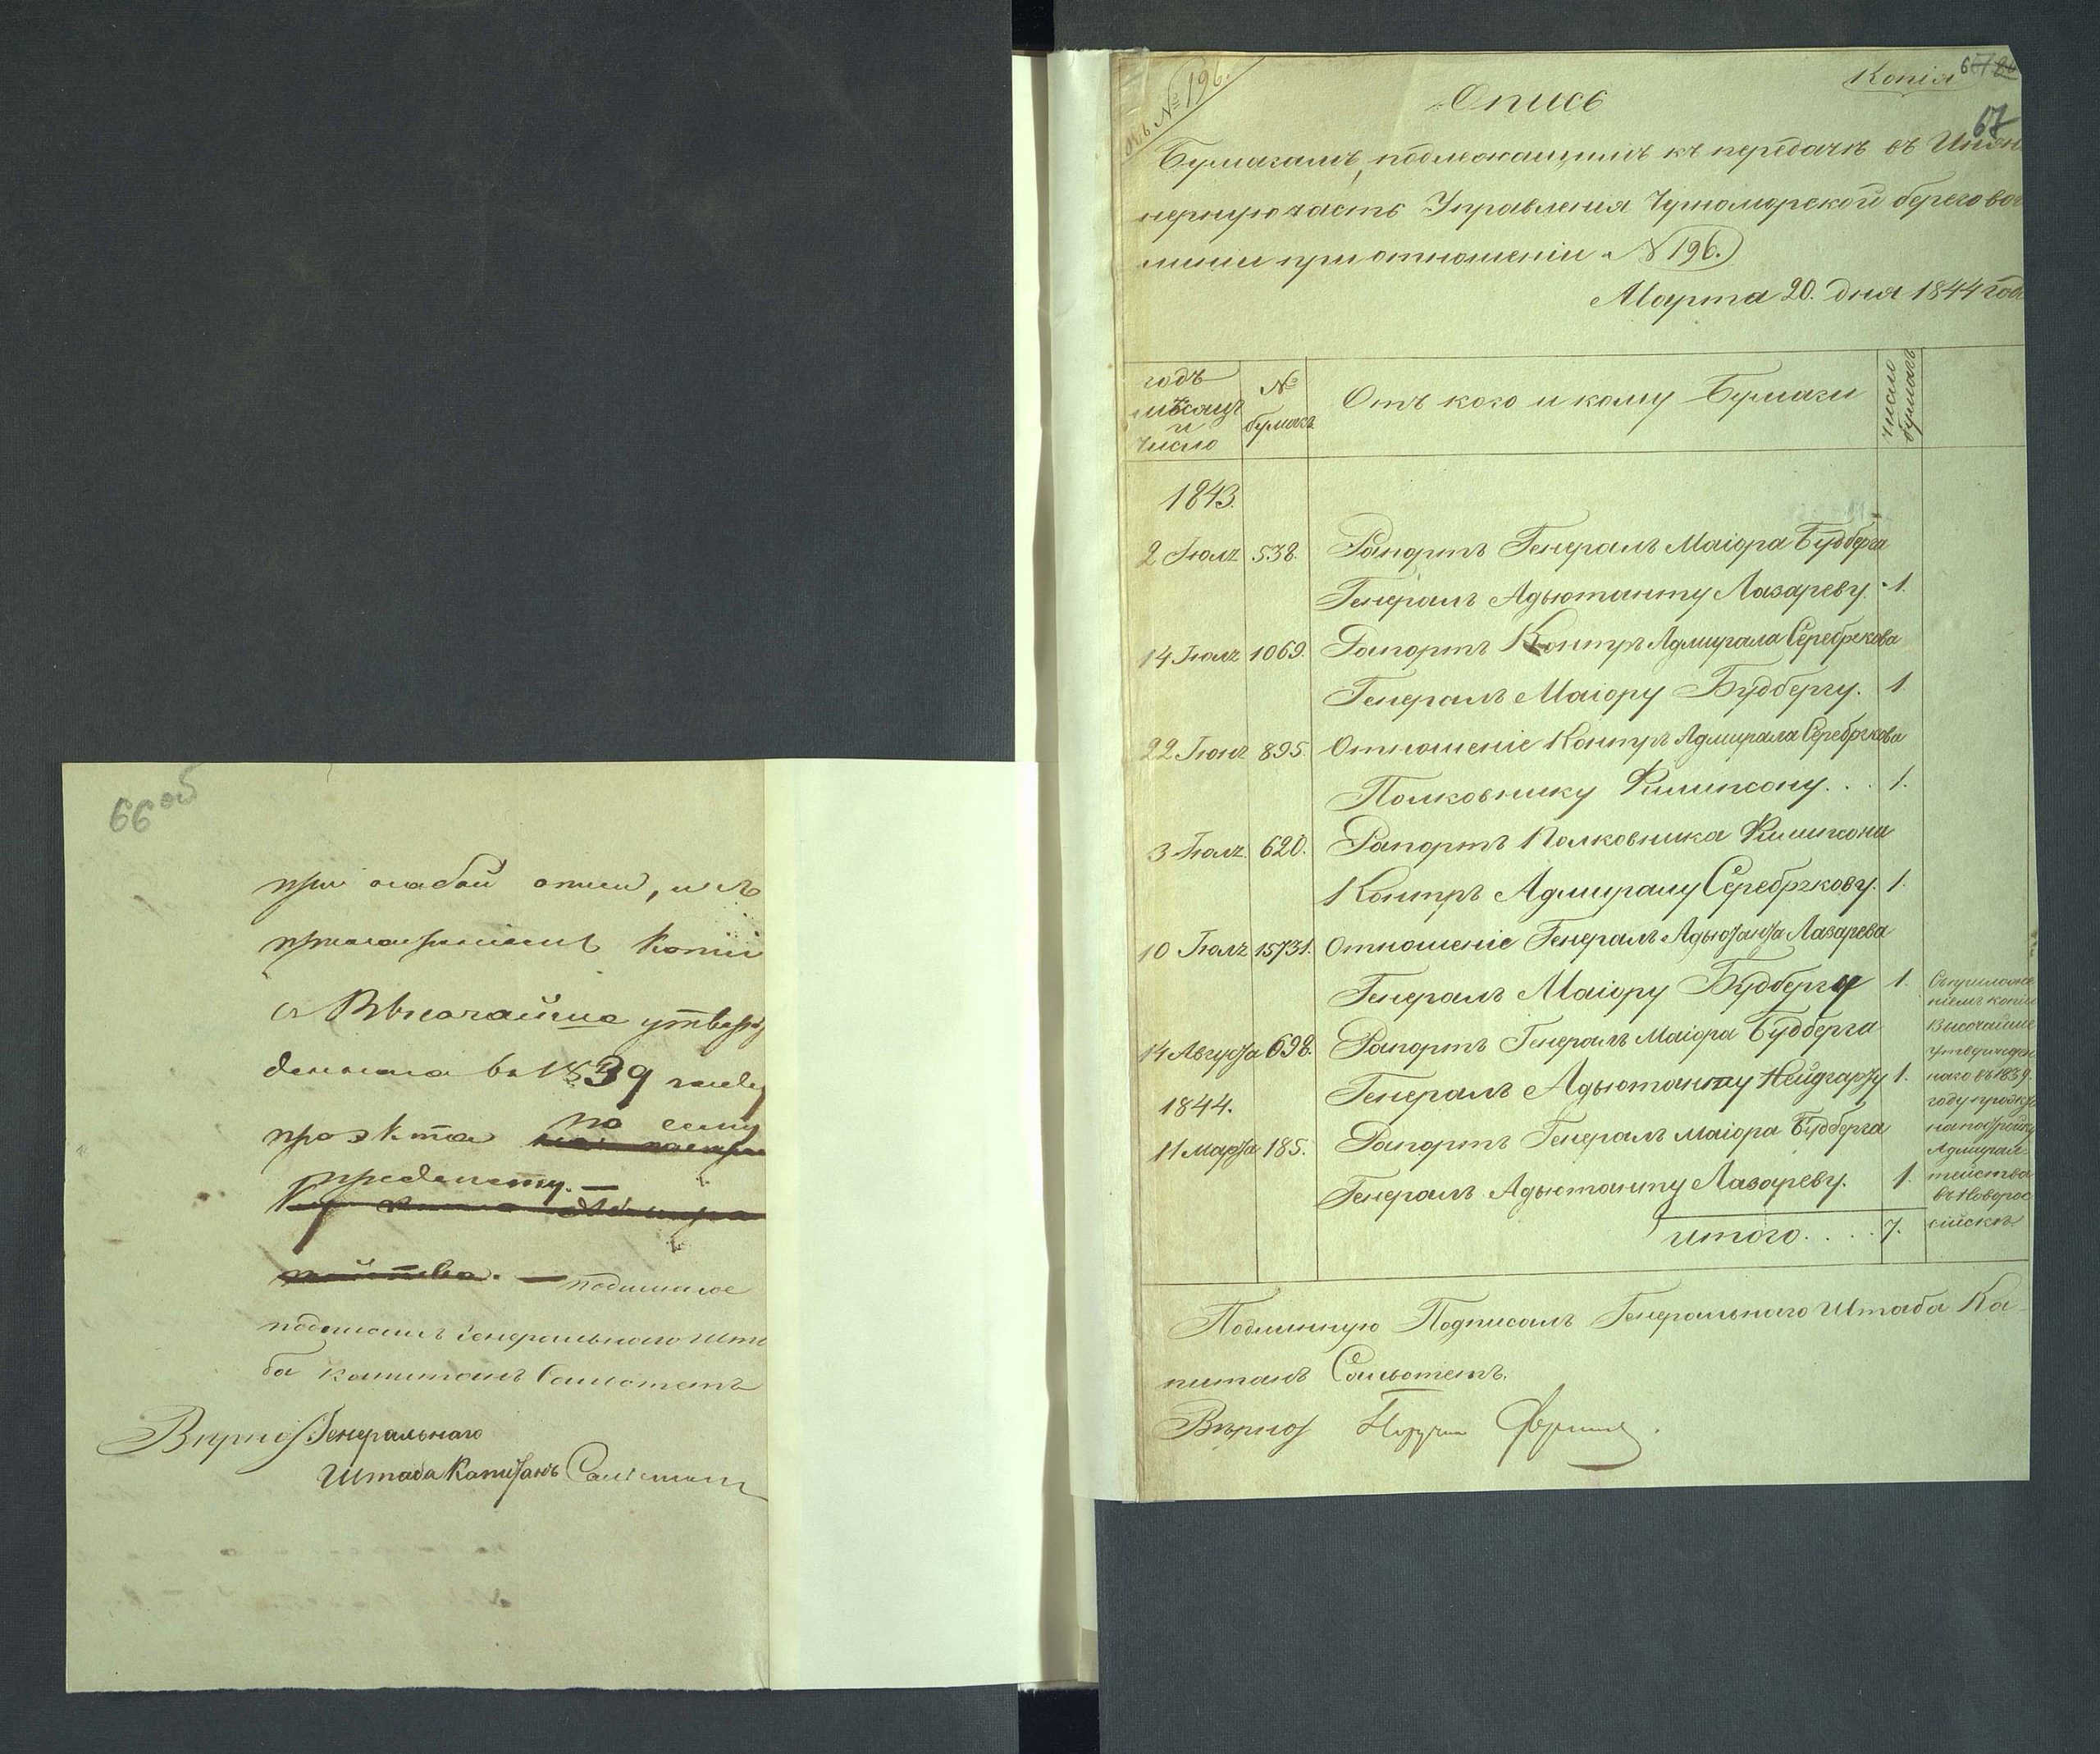 66 об
при особой описи, и съ
приложеніемъ копіи
съ Высочайше утверж
деннаго въ 1839 году
проэкта по сему
предмету. —
подлинное
подписалъ Генеральнаго Шта
ба капитанъ
Вѣрно: Генеральнаго
Штаба Капитанъ
Къ № 196.
Копія
67
Опись
Бумагамъ, подлежащимъ къ передачѣ въ Инже
нерную часть Управленія Черноморской берегово
линіи при отношеніи № 196.
Марта 20. дня 1844 год
годъ
мѣсяцъ
и
число
№
бумагъ
Отъ кого и кому Бумаги
число
бумагъ
1843.
2 Іюля 538. Рапортъ Генералъ Маіора Будберга
Генералъ Адьютанту Лазареву. 1.
14 Іюля 1069. Рапортъ Контръ Адмирала Серебрякова
Генералъ Маіору Будбергу. 1.
22 Іюня 895. Отношеніе Контръ Адмирала Серебрякова
Полковнику Филипсону. . . 1.
3 Іюля 620. Рапортъ Полковника Филипсона
Контръ Адмиралу Серебрякову. 1.
10 Іюля 15731. Отношеніе Генералъ Адьютанта Лазарева
Генералъ Маіору Будбергу 1.
14 Августа 698. Рапортъ Генералъ Маіора Будберга
Генералъ Адьютанту Нейдгарту 1.
1844.
11 Марта 185. Рапортъ Генералъ Маіора Будберга
Генералъ Адьютанту Лазареву. 1.
Итого. . . . 7.
Съ приложе
ніемъ копіи
Высочайше
утвержден
наго въ 1839.
году проэкта
на постройку
Адмирал
тейства
въ Новорос
сійскѣ
Подлинную Подписалъ Генеральнаго Штаба Ка-
питанъ
Вѣрно: